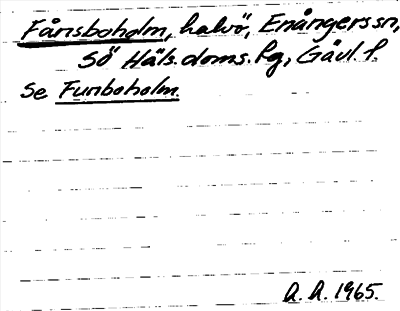 Fånsboholm, halvö, Enångers sn,
Sö Häls. doms. fg, Gävl. l.
Se Funboholm.
A. A. 1965.